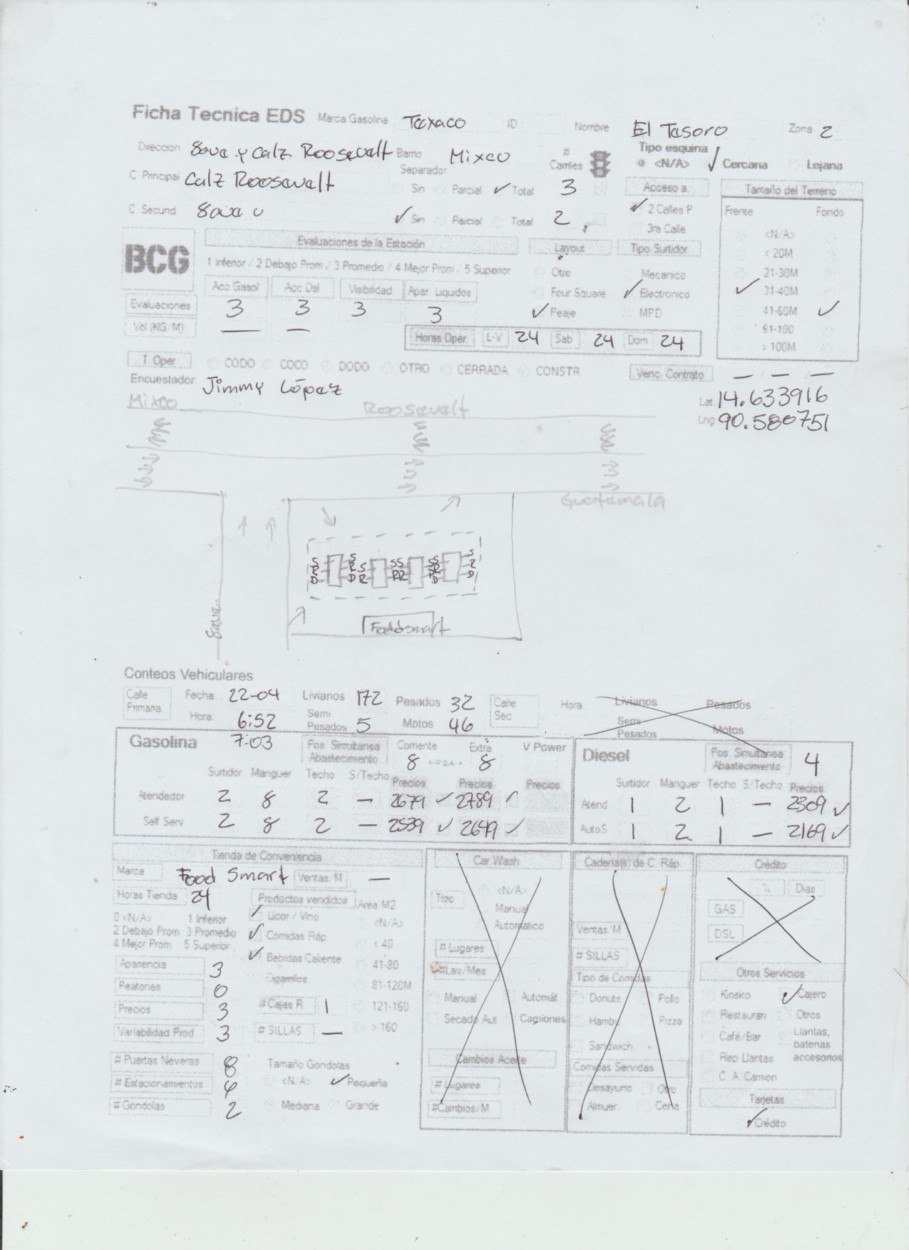 Ficha Tecnica EDS Marca Gasolina Texaco ID Nombre El Tesoro Zona 2
Direccion 8ava y Calz Roosevalt Barrio Mixco # Carriles Tipo esquina <N/A> Cercana Lejana
C Principal Calz Roosevalt Separador Sin Parcial ✓ Total 3 Acceso a: Tamaño del Terreno
C Secund. 8ava ✓ Sin Parcial Total 2 ✓ 2 Calles P Frente Fondo
3ra Calle <N/A>
BCG Evaluaciones de la Estación Layout Tipo Surtidor < 20M
1 Inferior / 2 Debajo Prom / 3 Promedio / 4 Mejor Prom / 5 Superior Otre Mecanico 21-30M
Acc Gasol Acc Dsl Visibilidad Apar. Liquidos Four Square ✓ Electronico ✓ 31-40M
Evaluaciones 3 3 3 3 ✓ Peaje MPD 41-60M ✓
Vol (KG/M) — — 61-100
Horas Oper L-V 24 Sab 24 Dom 24 > 100M
T. Oper CODO COCO DODO OTRO CERRADA CONSTR Venc. Contrato — — —
Encuestador Jimmy López Lat 14.633916
Lng 90.580751
Mixco Roosevalt
Guatemala
S S S SS S S
R R R RR R R
D D D D
8ava
Foodsmart
Conteos Vehiculares
Calle Primaria Fecha 22-04 Livianos 172 Pesados 32 Calle Sec Hora Livianos Pesados
Hora: 6:52 Semi Pesados 5 Motos 46 Semi Pesados Motos
Gasolina 7:03 Pos. Simultanea Abastecimiento Corriente 8 Extra 8 V Power Diesel Pos. Simultanea Abastecimiento 4
Surtidor Manguer Techo S/Techo Precios Precios Precios Surtidor Manguer Techo S/Techo Precios
Atendedor 2 8 2 — 2679 ✓ 2789 ✓ Atend 1 2 1 — 2309 ✓
Self Serv. 2 8 2 — 2539 ✓ 2649 ✓ AutoS 1 2 1 — 2169 ✓
Tienda de Conveniencia Car Wash Cadena(s) de C. Ráp. Crédito
Marca Food Smart Ventas/M — <N/A> % Dias
Horas Tienda 24 Productos vendidos Area M2 Tipo Manual GAS
0 <N/A> 1 Inferior ✓ Licor / Vino <N/A> Automatico Ventas/M DSL
2 Debajo Prom 3 Promedio ✓ Comidas Ráp < 40 # Lugares # SILLAS
4 Mejor Prom 5 Superior ✓ Bebidas Caliente 41-80 #Lav/Mes Tipo de Comidas Otros Servicios
Apariencia 3 Cigarrillos 81-120M Manual Automát Donuts Pollo Kiosko ✓ Cajero
Peatones 0 # Cajas R 1 121-160 Secado Aut Camiones Hambu Pizza Restauran Otros
Precios 3 # SILLAS — > 160 Sandwich Café/Bar Llantas, baterias accesorios
Variabilidad Prod 3 Cambios Aceite Comidas Servidas Rep Llantas
# Puertas Neveras 8 Tamaño Gondolas # Lugares Desayuno Otro C. A. Camion
# Estacionamientos <N/A> ✓ Pequeña #Cambios/M Almuer Cena Tarjetas
# Gondolas 2 Mediana Grande ✓ Crédito